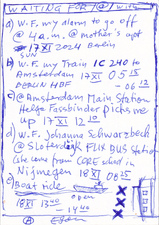 WAITING FOR /@/ with
a) W.F. my alarm to go off
@ 4 a.m. @ mother's apt
17 XI 2024 Berlin
SUN
b) W.F. my Train IC 240 to
Amsterdam 17 XI 05 15
BERLIN HBF - 06 12
c) @ Amsterdam Main Station
Helge Fassbinder picks me
up 17 XI 12 10
d) W.F. Johanna Schwarzbeck
@ Sloterdijk FLIX BUS station
she came from CORE school in
Nijmegen 18 XI 08 25
e) Boat ride
open
18 XI 13 40
14 40